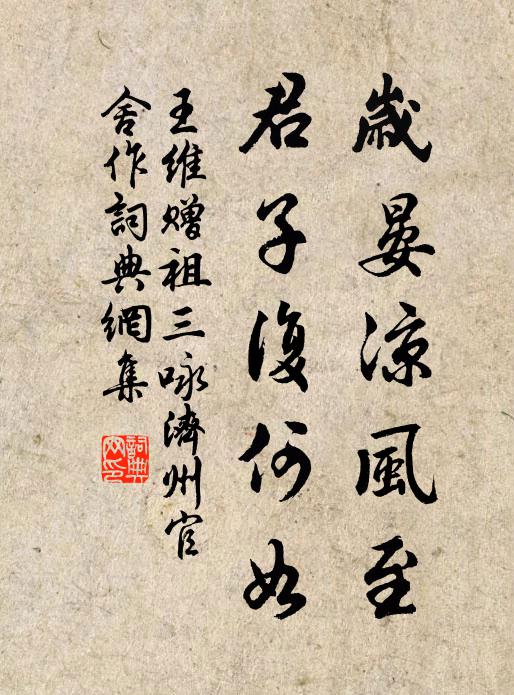 歲晏涼風至
君子復何如
王維贈祖三咏濟州官
舍作詞典網集
詞典
网印